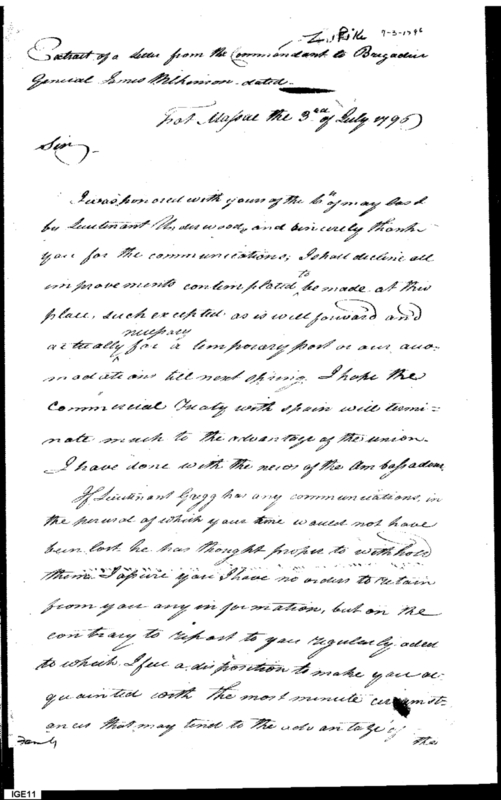 Z. Pike 7-3-1796
Extract of a letter from the Commandant to Brigadier
General James Wilkinson dated
Fort Massac the 3rd of July 1796
Sir
I was honored with yours of the 6th of may last
by Lieutenant Underwood, and sincerely thank
you for the communications; I shall decline all
improvements contemplated to be made at this
place, such excepted as is well forward and
actually necessary for a temporary post or our acco-
modations till next spring. I hope the
Commercial Treaty with Spain will termi-
nate much to the advantage of the union.
I have done with the news of the Ambassadors
If Lieutenant Gregg has any communications, in
the perusal of which your time would not have
been lost he has thought proper to withhold
them. I assure you I have no orders to retain
from you any information, but on the
contrary to report to you regularly, added
to which I feel a disposition to make you ac-
quainted with the most minute circumst-
ances that may tend to the advantage of
the
IGE11